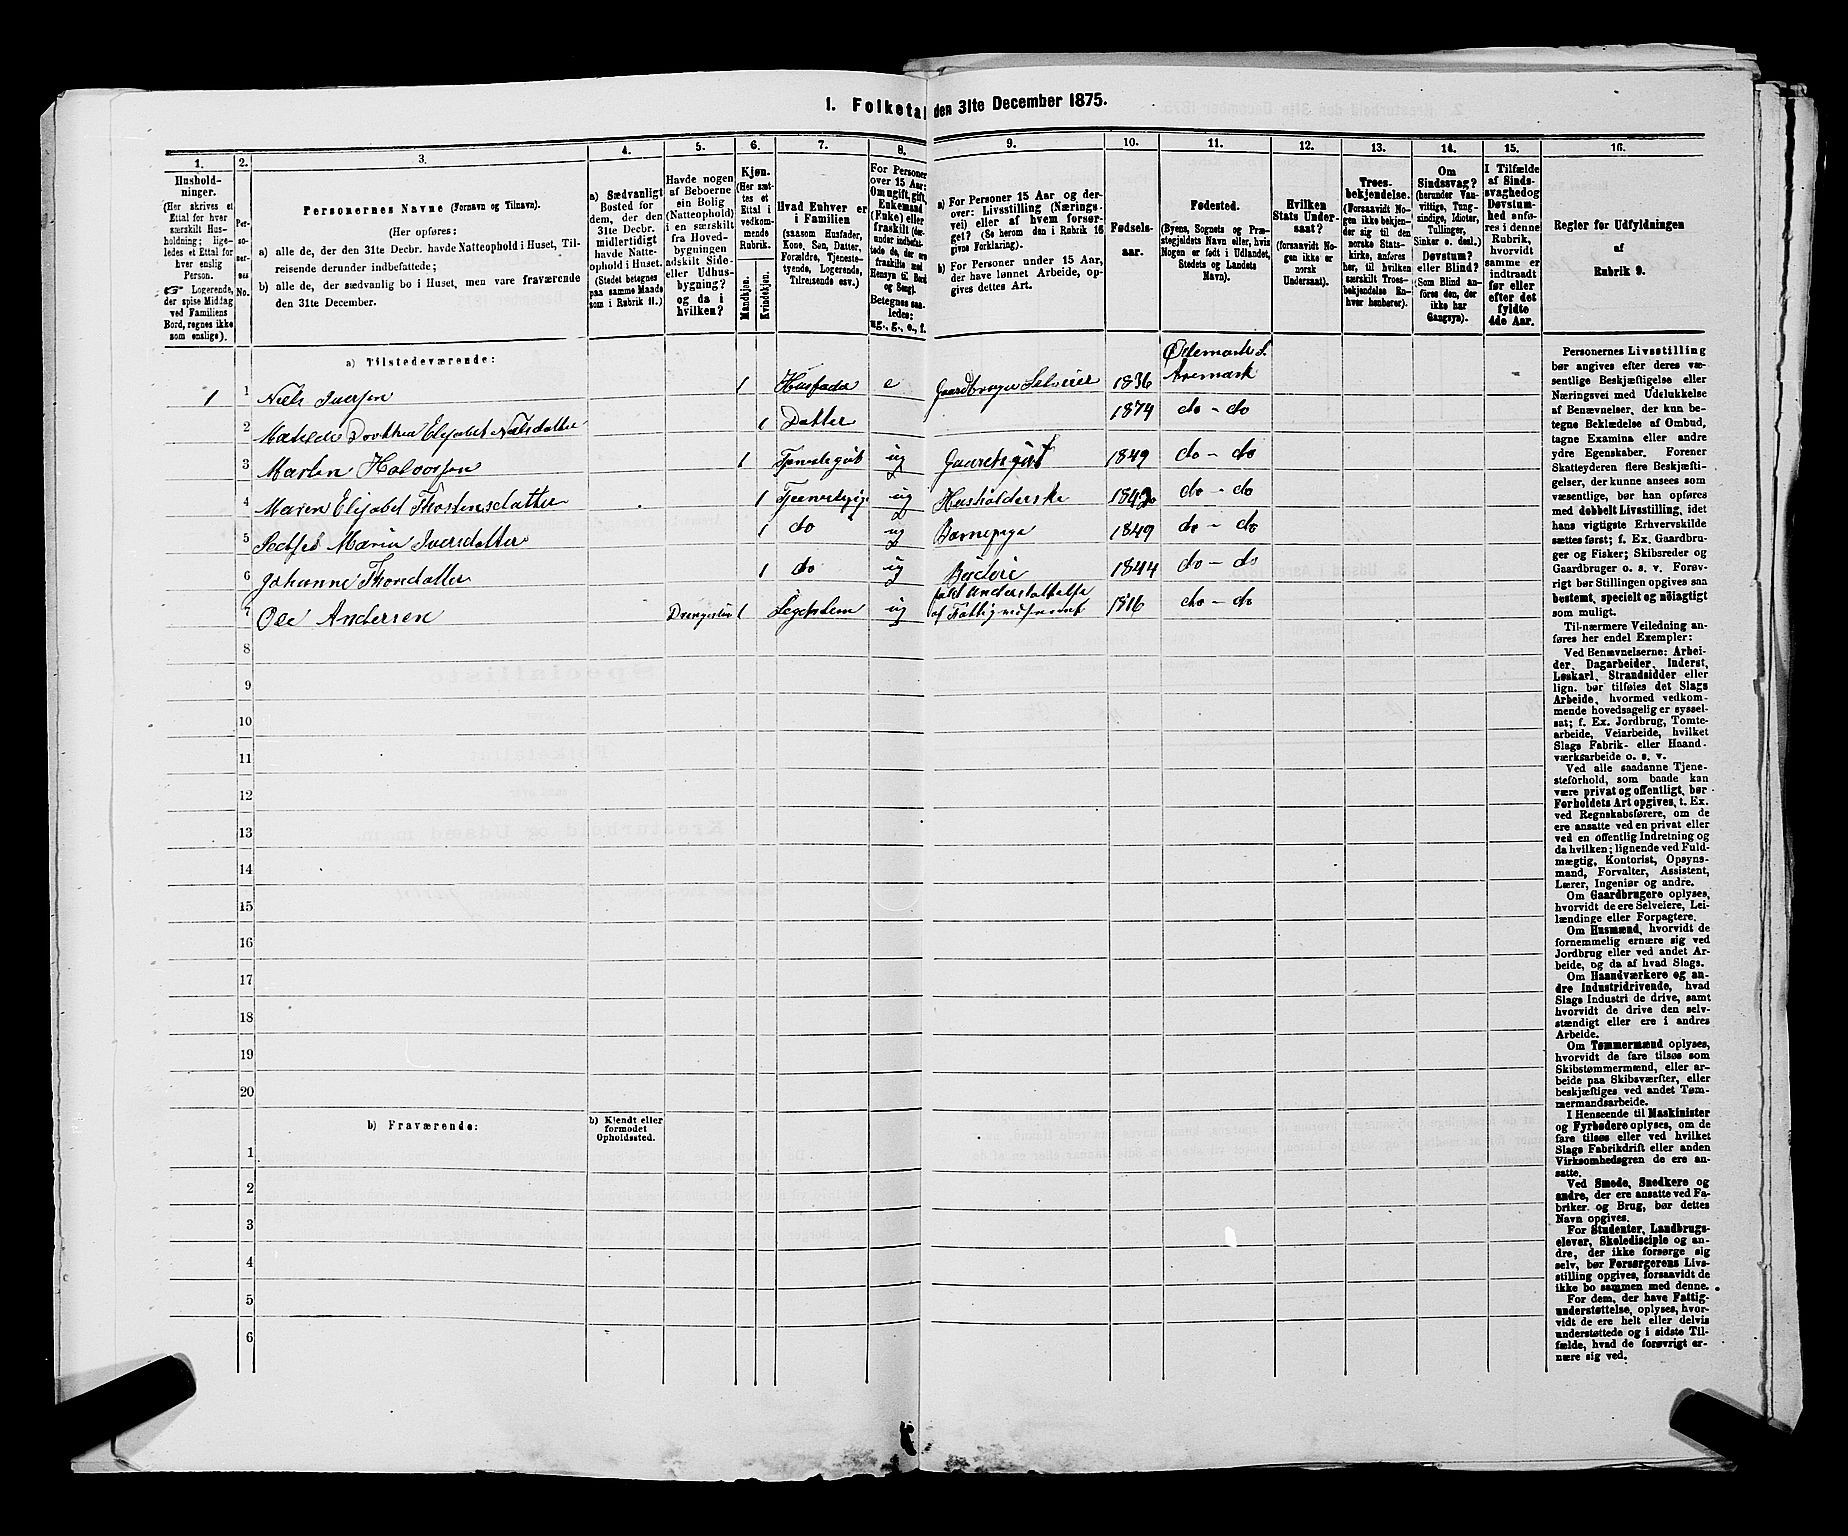 1. Folketal den 31te December 1875.
1.
2.
3.
4.
5.
6.
7.
8.
9.
10.
11.
12.
13.
14.
15.
16.
Hushold-
ninger.
(Her skrives et
Ettal for hver
særskilt Hus-
holdning; lige-
ledes et Ettal for
hver enslig
Person.
☞ Logerende,
der spise Middag
ved Familiens
Bord, regnes ikke
som enslige).
Per-
so-
ner-
nes
No.
Personernes Navne (Fornavn og Tilnavn).
(Her opføres:
a) alle de, der den 31te Decbr. havde Natteophold i Huset, Til-
reisende derunder indbefattede;
b) alle de, der sædvanlig bo i Huset, men vare fraværende
den 31te December.
a) Sædvanligt
Bosted for
dem, der den
31te Decbr.
midlertidigt
havde Natte-
ophold i Huset.
(Stedet betegnes
paa samme Maade
som i Rubrik 11.)
Havde nogen
af Beboerne
ein Bolig
(Natteophold)
i en særskilt
fra Hoved-
bygningen
adskilt Side-
eller Udhus-
bygning?
og da i
hvilken?
Kjøn.
(Her sæt-
tes et
Ettal i
vedkom-
mende
Rubrik.
Mandkjøn.
Kvindekjøn.
Hvad Enhver er
i Familien
(saasom Husfader,
Kone, Søn, Datter,
Forældre, Tjeneste-
tyende, Logerende,
Tilreisende osv.)
For Personer
over 15 Aar:
Om ugift, gift,
Enkemand
(Enke) eller
fraskilt (der-
under indbefat-
tede de, der ere
fraskilte med
Hensyn til Bord
og Seng).
Betegnes saa-
ledes:
ug., g., e., f.
a) For Personer 15 Aar og der-
over: Livsstilling (Nærings-
vei) eller af hvem forsør-
get? (Se herom den i Rubrik 16
givne Forklaring).
b) For Personer under 15 Aar,
der have lønnet Arbeide, op-
gives dettes Art.
Fødsels-
aar.
Fødested.
(Byens, Sognets og Præ-
stegjældets Navn eller, hvis
Nogen er født i Udlandet,
Stedets og Landets
Navn).
Hvilken
Stats Under-
saat?
(forsaavidt No-
gen ikke er
norsk
Undersaat).
Troes-
bekjendelse.
(Forsaavidt No-
gen ikke bekjen-
der sig til den
norske Stats-
kirke, anføres
her, til hvilken
særskilt Troes-
bekjendelse En-
hver henhører).
Om
Sindssvag?
(herunder Van-
vittige, Tung-
sindige, Idioter,
Tullinger,
Sinker o. desl.)
Døvstum?
eller Blind?
(Som Blind an-
føres den, der
ikke har
Gangsyn).
I Tilfælde
af Sinds-
svaghed og
Døvstum-
hed anfø-
res i denne
Rubrik,
hvorvidt
samme er
indtraadt
før eller
efter det
fyldte
4de Aar.
Regler for Udfyldningen
af
Rubrik 9.
a) Tilstedeværende:
Ødemark S.
1 1 Niels Iversen 1 Husfader e Gaardbruger Selveier 1836 Aremark
2 Matilde Dorthea Elisabet Nielsdatter 1 Datter 1874 do - do
3 Marten Halvorsen 1 Tjenestegut ug Gaardsgut 1849 do - do
4 Maren Elisabet Thostensdatter 1 Tjenestepige ug Husholderske 1842 do - do
5 Maria Iversdatter 1 do ug Barnepige 1849 do - do
6 Johanne Thorsdatter 1 do ug Budeie 1844 do - do
7 Ole Andersen 1 Legdslem ug af Fattigvæsenet 1816 do - do
8
9
10
11
12
13
14
15
16
17
18
19
20
b) Fraværende:
b) Kjendt eller
formodet
Opholdssted.
1
2
3
4
5
6
Personernes Livsstilling
bør angives efter deres væ-
sentlige Beskjæftigelse eller
Næringsvei med Udelukkelse
af Benævnelser, der kun be-
tegne Beklædelse af Ombud,
tagne Examina eller andre
ydre Egenskaber. Forener
Skatteyderen flere Beskjæfti-
gelser, der kunne ansees som
væsentlige, bør han opføres
med dobbelt Livsstilling, idet
hans vigtigste Erhvervskilde
sættes først; f. Ex. Gaardbru-
ger og Fisker; Skibsreder og
Gaardbruger o. s. v. Forøv-
rigt bør Stillingen opgives saa
bestemt, specielt og nøiagtigt
som muligt.
Til nærmere Veiledning an-
føres her endel Exempler:
Ved Benævnelserne: Arbei-
der, Dagarbeider, Inderst,
Løskarl, Strandsidder eller
lign. bør tilføies det Slags
Arbeide, hvormed vedkom-
mende hovedsagelig er syssel-
sat; f. Ex. Jordbrug, Tomte-
arbeide, Veiarbeide, hvilket
Slags Fabrik- eller Haand-
værksarbeide o. s. v.
Ved alle saadanne Tjene-
steforhold, som baade kan
være privat og offentligt, bør
Forholdets Art opgives, t. Ex.
ved Regnskabsførere, om de
ere ansatte ved en privat eller
ved en offentlig Indretning og
da hvilken; lignende ved Fuld-
mægtig, Kontorist, Opsyns-
mand, Forvalter, Assistent,
Lærer, Ingeniør og andre.
Om Gaardbrugere oplyses,
hvorvidt de ere Selveiere, Lei-
lændinge eller Forpagtere.
Om Husmænd, hvorvidt de
fornemmelig ernære sig ved
Jordbrug eller ved andet Ar-
beide, og da af hvad Slags.
Om Haandværkere og an-
dre Industridrivende, hvad
Slags Industri de drive, samt
hvorvidt de drive den selv-
stændigt eller ere i andres
Arbeide.
Om Tømmermænd oplyses,
hvorvidt de fare tilsøs som
Skibstømmermænd, eller ar-
beide paa Skibsværfter, eller
beskjæftiges ved andet Tøm-
mermandsarbeide.
I Henseende til Maskinister
og Fyrbødere oplyses, om de
fare tilsøs eller ved hvilket
Slags Fabrikdrift eller anden
Virksomhedsgren de ere an-
satte.
Ved Smede, Snedkere og
andre, der ere ansatte ved Fa-
briker og Brug, bør dettes
Navn opgives.
For Studenter, Landbrugs-
elever, Skoledisciple og an-
dre, der ikke forsørge sig
selv, bør Forsørgerens Livs-
stilling opgives, forsaavidt de
ikke bo sammen med denne.
For dem, der have Fattig-
understøttelse, oplyses, hvor-
vidt de ere helt eller delvis
understøttede og i sidste Til-
fælde, hvad de forøvrigt er-
nære sig ved.